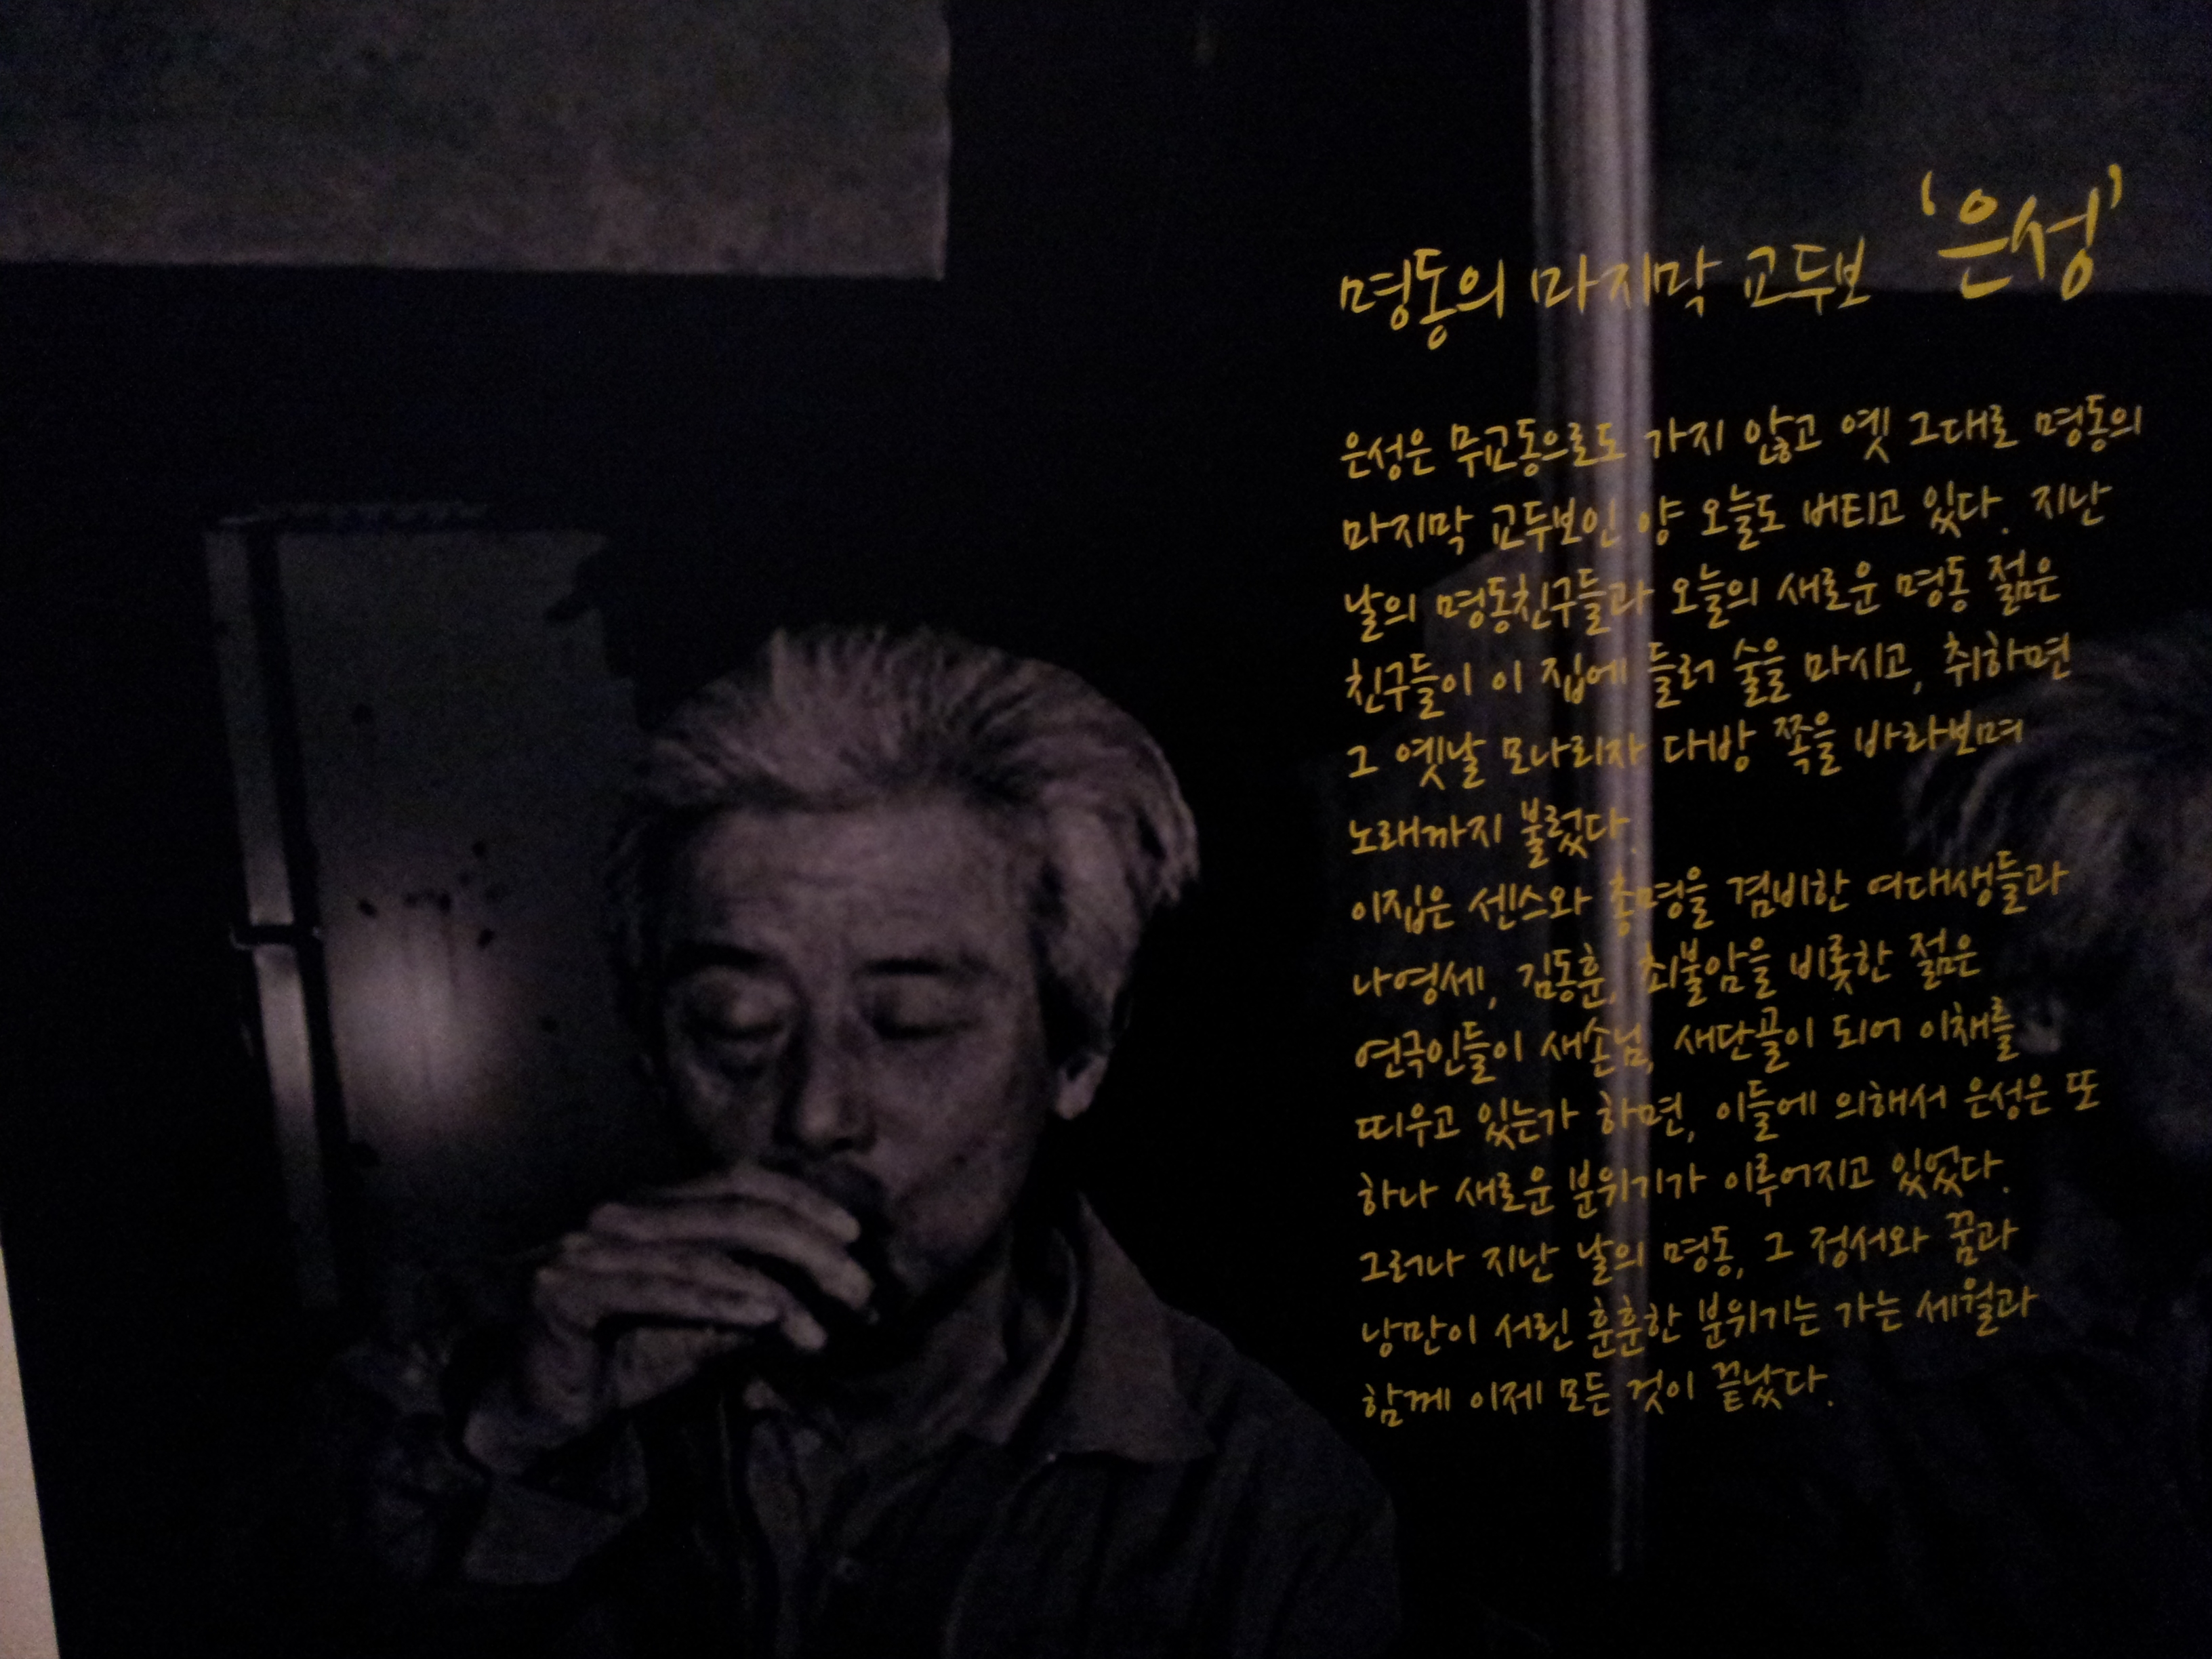 명동의 마지막 교두보 '은성'
은성은 무교동으로도 가지 않고 옛 그대로 명동의
마지막 교두보인 양 오늘도 버티고 있다. 지난
날의 명동친구들과 오늘의 새로운 명동 젊은
친구들이 이 집에 들러 술을 마시고, 취하면
그 옛날 모나리자 다방 쪽을 바라보며
노래까지 불렀다.
이집은 센스와 총명을 겸비한 여대생들과
나영세, 김동훈, 최불암을 비롯한 젊은
연극인들이 새손님, 새단골이 되어 이채를
띠우고 있는가 하면, 이들에 의해서 은성은 또
하나 새로운 분위기가 이루어지고 있었다.
그러나 지난 날의 명동, 그 정서와 꿈과
낭만이 서린 훈훈한 분위기는 가는 세월과
함께 이제 모든 것이 끝났다.